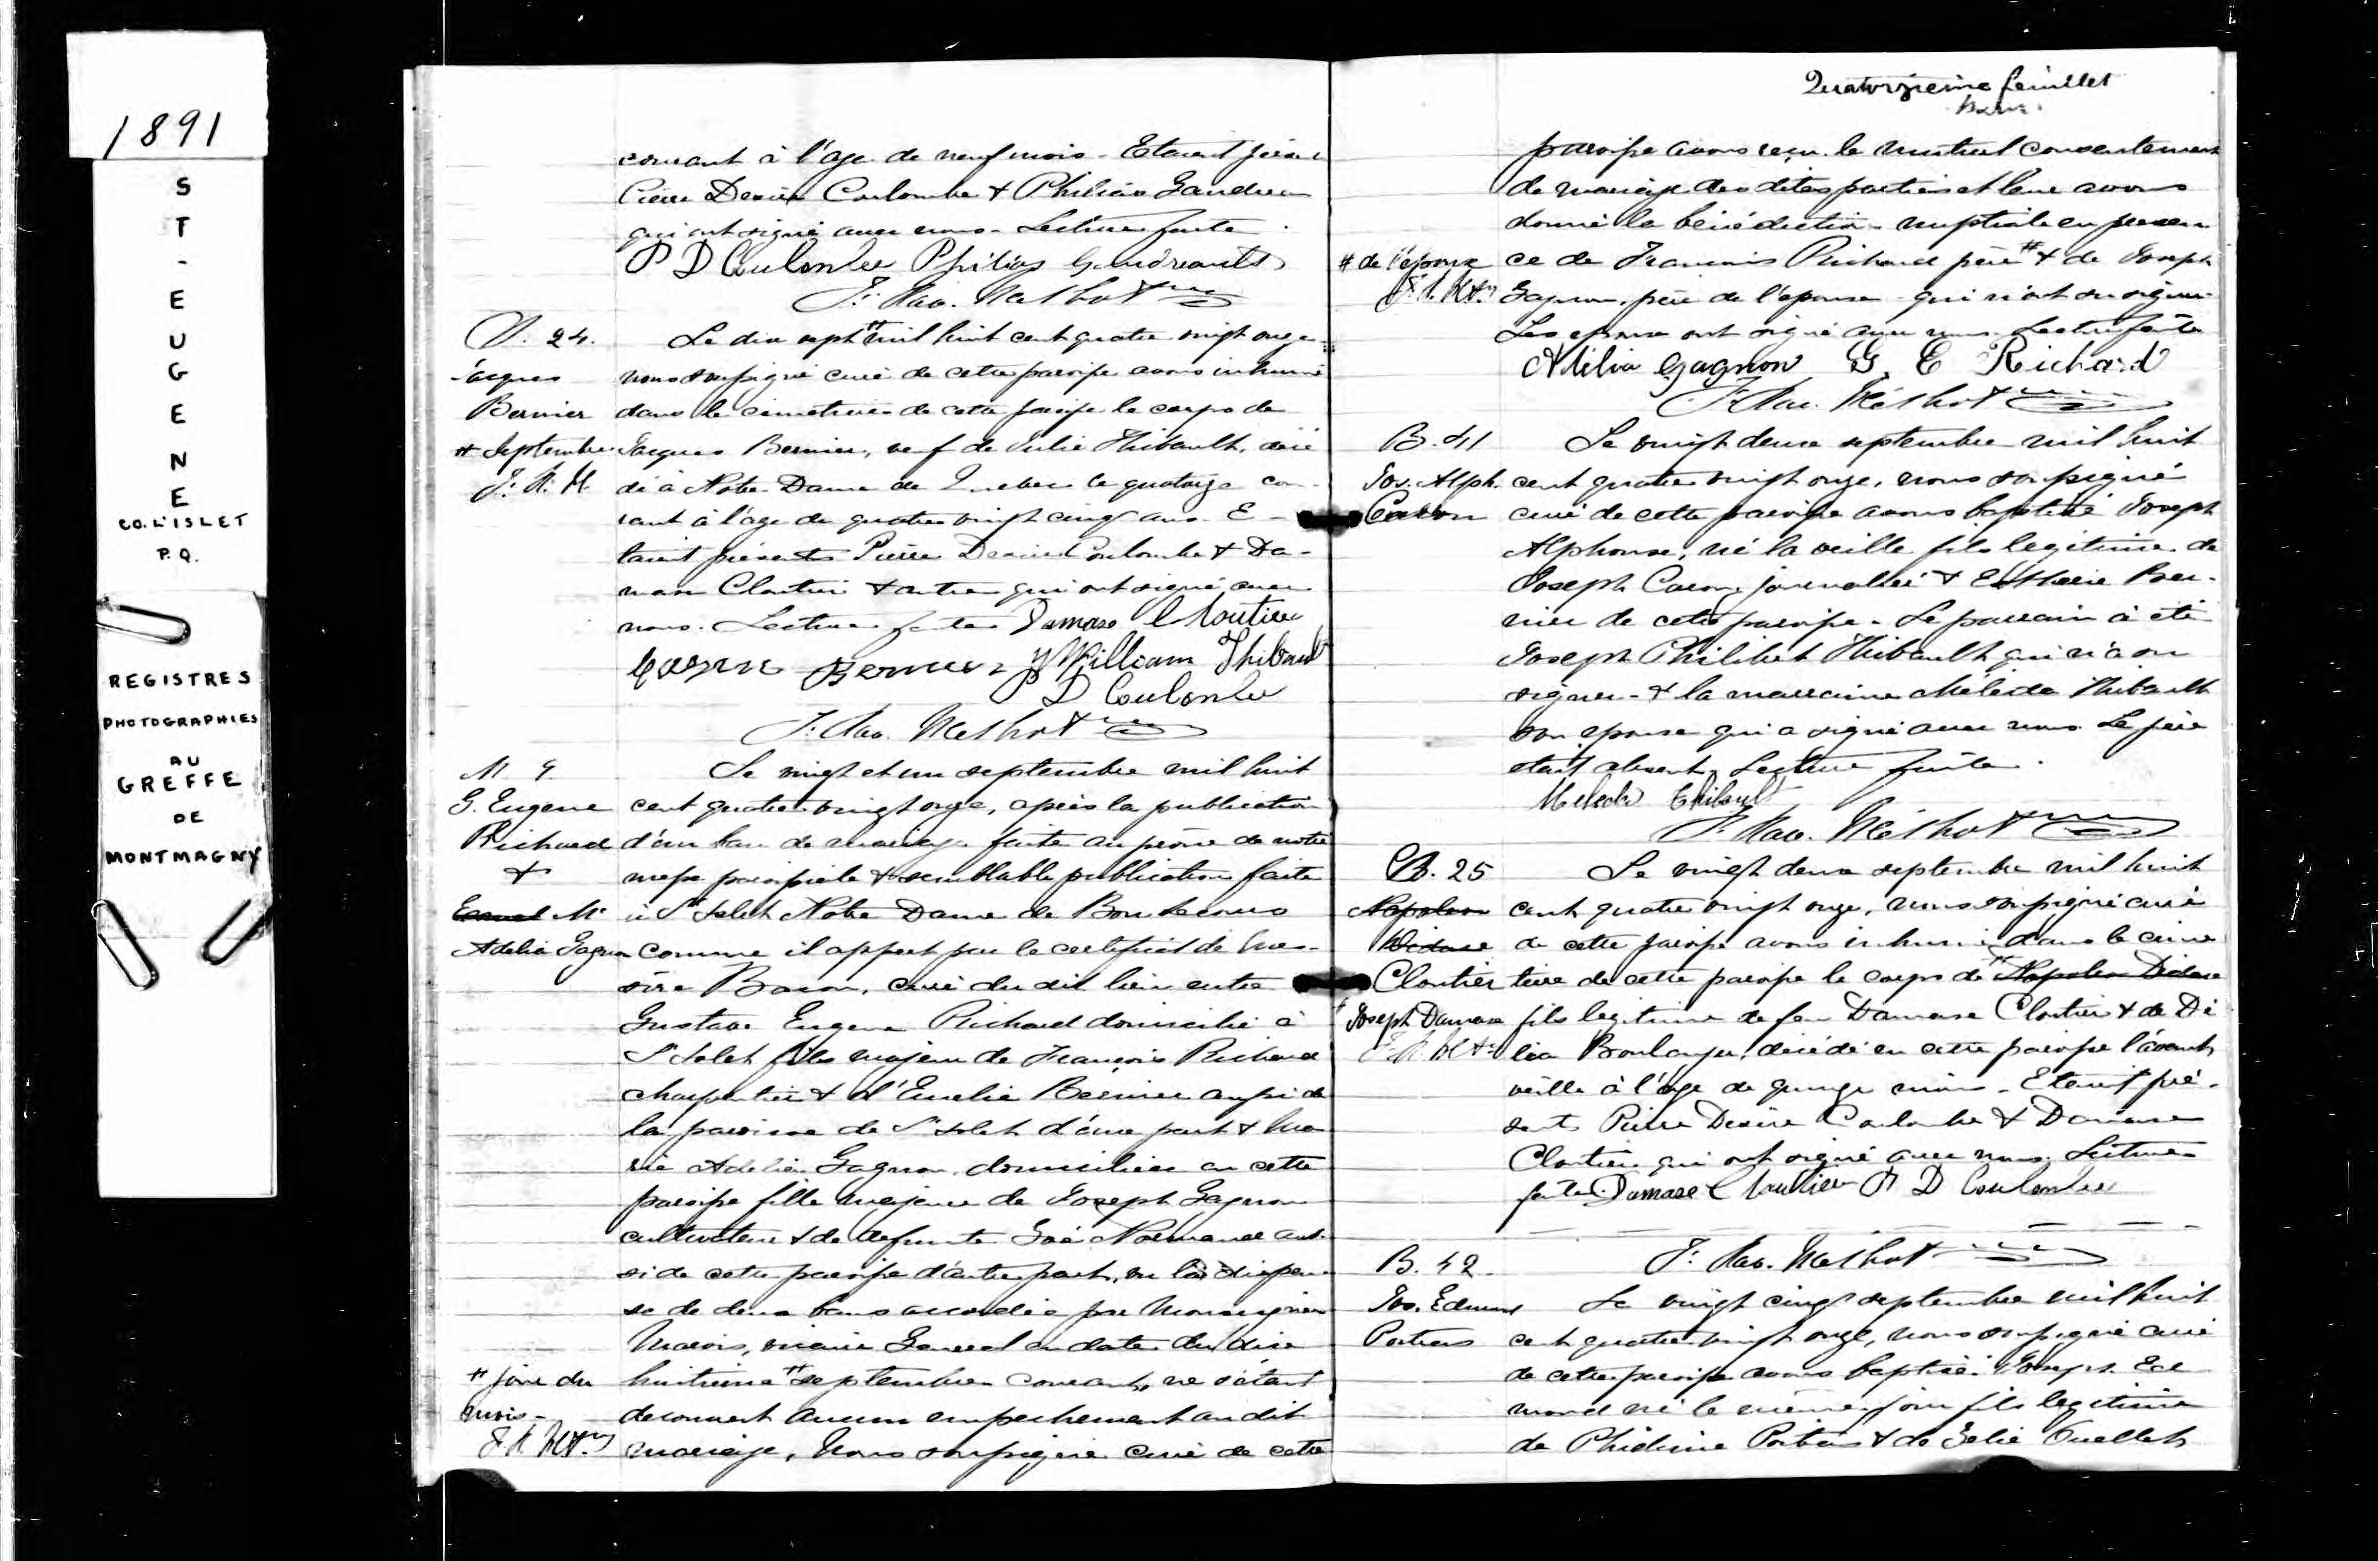 1891
ST-EUGENE
CO. L'ISLET
P.Q.
REGISTRES
PHOTOGRAPHIES
AU
GREFFE
DE
MONTMAGNY
courant à l'age de neuf mois - Etaient présents
Pierre Desiré Coulombe & Philias Gaudreau
qui ont signé avec nous. Lecture faite.
P D Coulombe Philias Gaudreault
F: Rao. Méthot
S. 24.
Jacques
Bernier
# Septembre
F. R. M.
Le dix sept # mil huit cent quatre vingt onze
nous soussigné curé de cette paroisse avons inhumé
dans le cimetière de cette paroisse le corps de
Jacques Bernier, veuf de Julie Thibault, décé
dé à Notre Dame de Quebec le quatorze cou-
rant à l'age de quatre vingt cinq ans. E-
taient présents Pierre Desiré Coulombe & Da-
mase Cloutier & autres qui ont signé avec
nous. Lecture faite Damase Cloutier
Bernier William Thibault
P D Coulombe
F: Rao. Méthot
M 9
G. Eugene
Richard
&
Mie
Adelia Gagnon
Le vingt et un septembre mil huit
cent quatre vingt onze, après la publication
d'un ban de mariage faite au prône de notre
messe paroissiale & semblable publication faite
à l'Islet Notre Dame de Bon Secours
comme il appert par le certificat de Mes-
sire Bacon, curé du dit lieu entre
Gustave Eugene Richard domicilié à
l'Islet fils majeur de François Richard
charpentier & d'Emelie Bernier aussi de
la paroisse de l'Islet d'une part & Ma
rie Adelia Gagnon domiciliée en cette
paroisse fille majeure de Joseph Gagnon
cultivateur & de defunte Zoé Normand aus-
si de cette paroisse d'autre part, vu la dispen-
se de deux bans accordée par Monseigneur
Marois, vicaire General en date du dix
# jour du
mois -
F R Mt
huitieme # septembre courant, ne s'étant
decouvert aucun empechement au dit
mariage, Nous soussigné curé de cette
Quatorzieme feuillet
paroisse avons reçu le mutuel consentement
de mariage des dites parties et leur avons
donné la bénédiction nuptiale en présen-
# de l'epoux
F. R. Mt
ce de François Richard père # & de Joseph
Gagnon, père de l'epouse qui n'ont su signer
Les epoux ont signé avec nous. Lecture faite
Adélia Gagnon G. E Richard
F. Rao. Méthot
B. 41
Jos. Alph.
Caron
Le vingt deux septembre mil huit
cent quatre vingt onze, nous soussigné
curé de cette paroisse avons baptisé Joseph
Alphonse, né la veille fils legitime de
Joseph Caron, journalier & Esthere Ber-
nier de cette paroisse - Le parrain a été
Joseph Philibert Thibault qui n'a su
signer - & la marraine Méleda Thibault
son epouse qui a signé avec nous. Le père
etait absent. Lecture faite.
Meleda Thibault
F. Rao. Méthot
S. 25
Napoleon
Didace
Cloutier
# Joseph Damase
F. R. Mt
Le vingt deux septembre mil huit
cent quatre vingt onze, nous soussigné curé
de cette paroisse avons inhumé dans le cime
tiere de cette paroisse le corps de # Napoleon Didace
fils legitime de feu Damase Cloutier & de Dé
lia Boulanger, décédé en cette paroisse l'avant
veille à l'age de quinze mois - Etaient pré-
sents Pierre Desiré Coulombe & Damase
Cloutier qui ont signé avec nous. Lecture
faite. Damase Cloutier P D Coulombe
F: Rao. Méthot
B. 42
Jos. Edmond
Poitras
Le vingt cinq septembre mil huit
cent quatre vingt onze, nous soussigné curé
de cette paroisse avons baptisé Joseph Ed
mond né le même jour fils legitime
de Phidime Poitras & de Zelie Ouellet